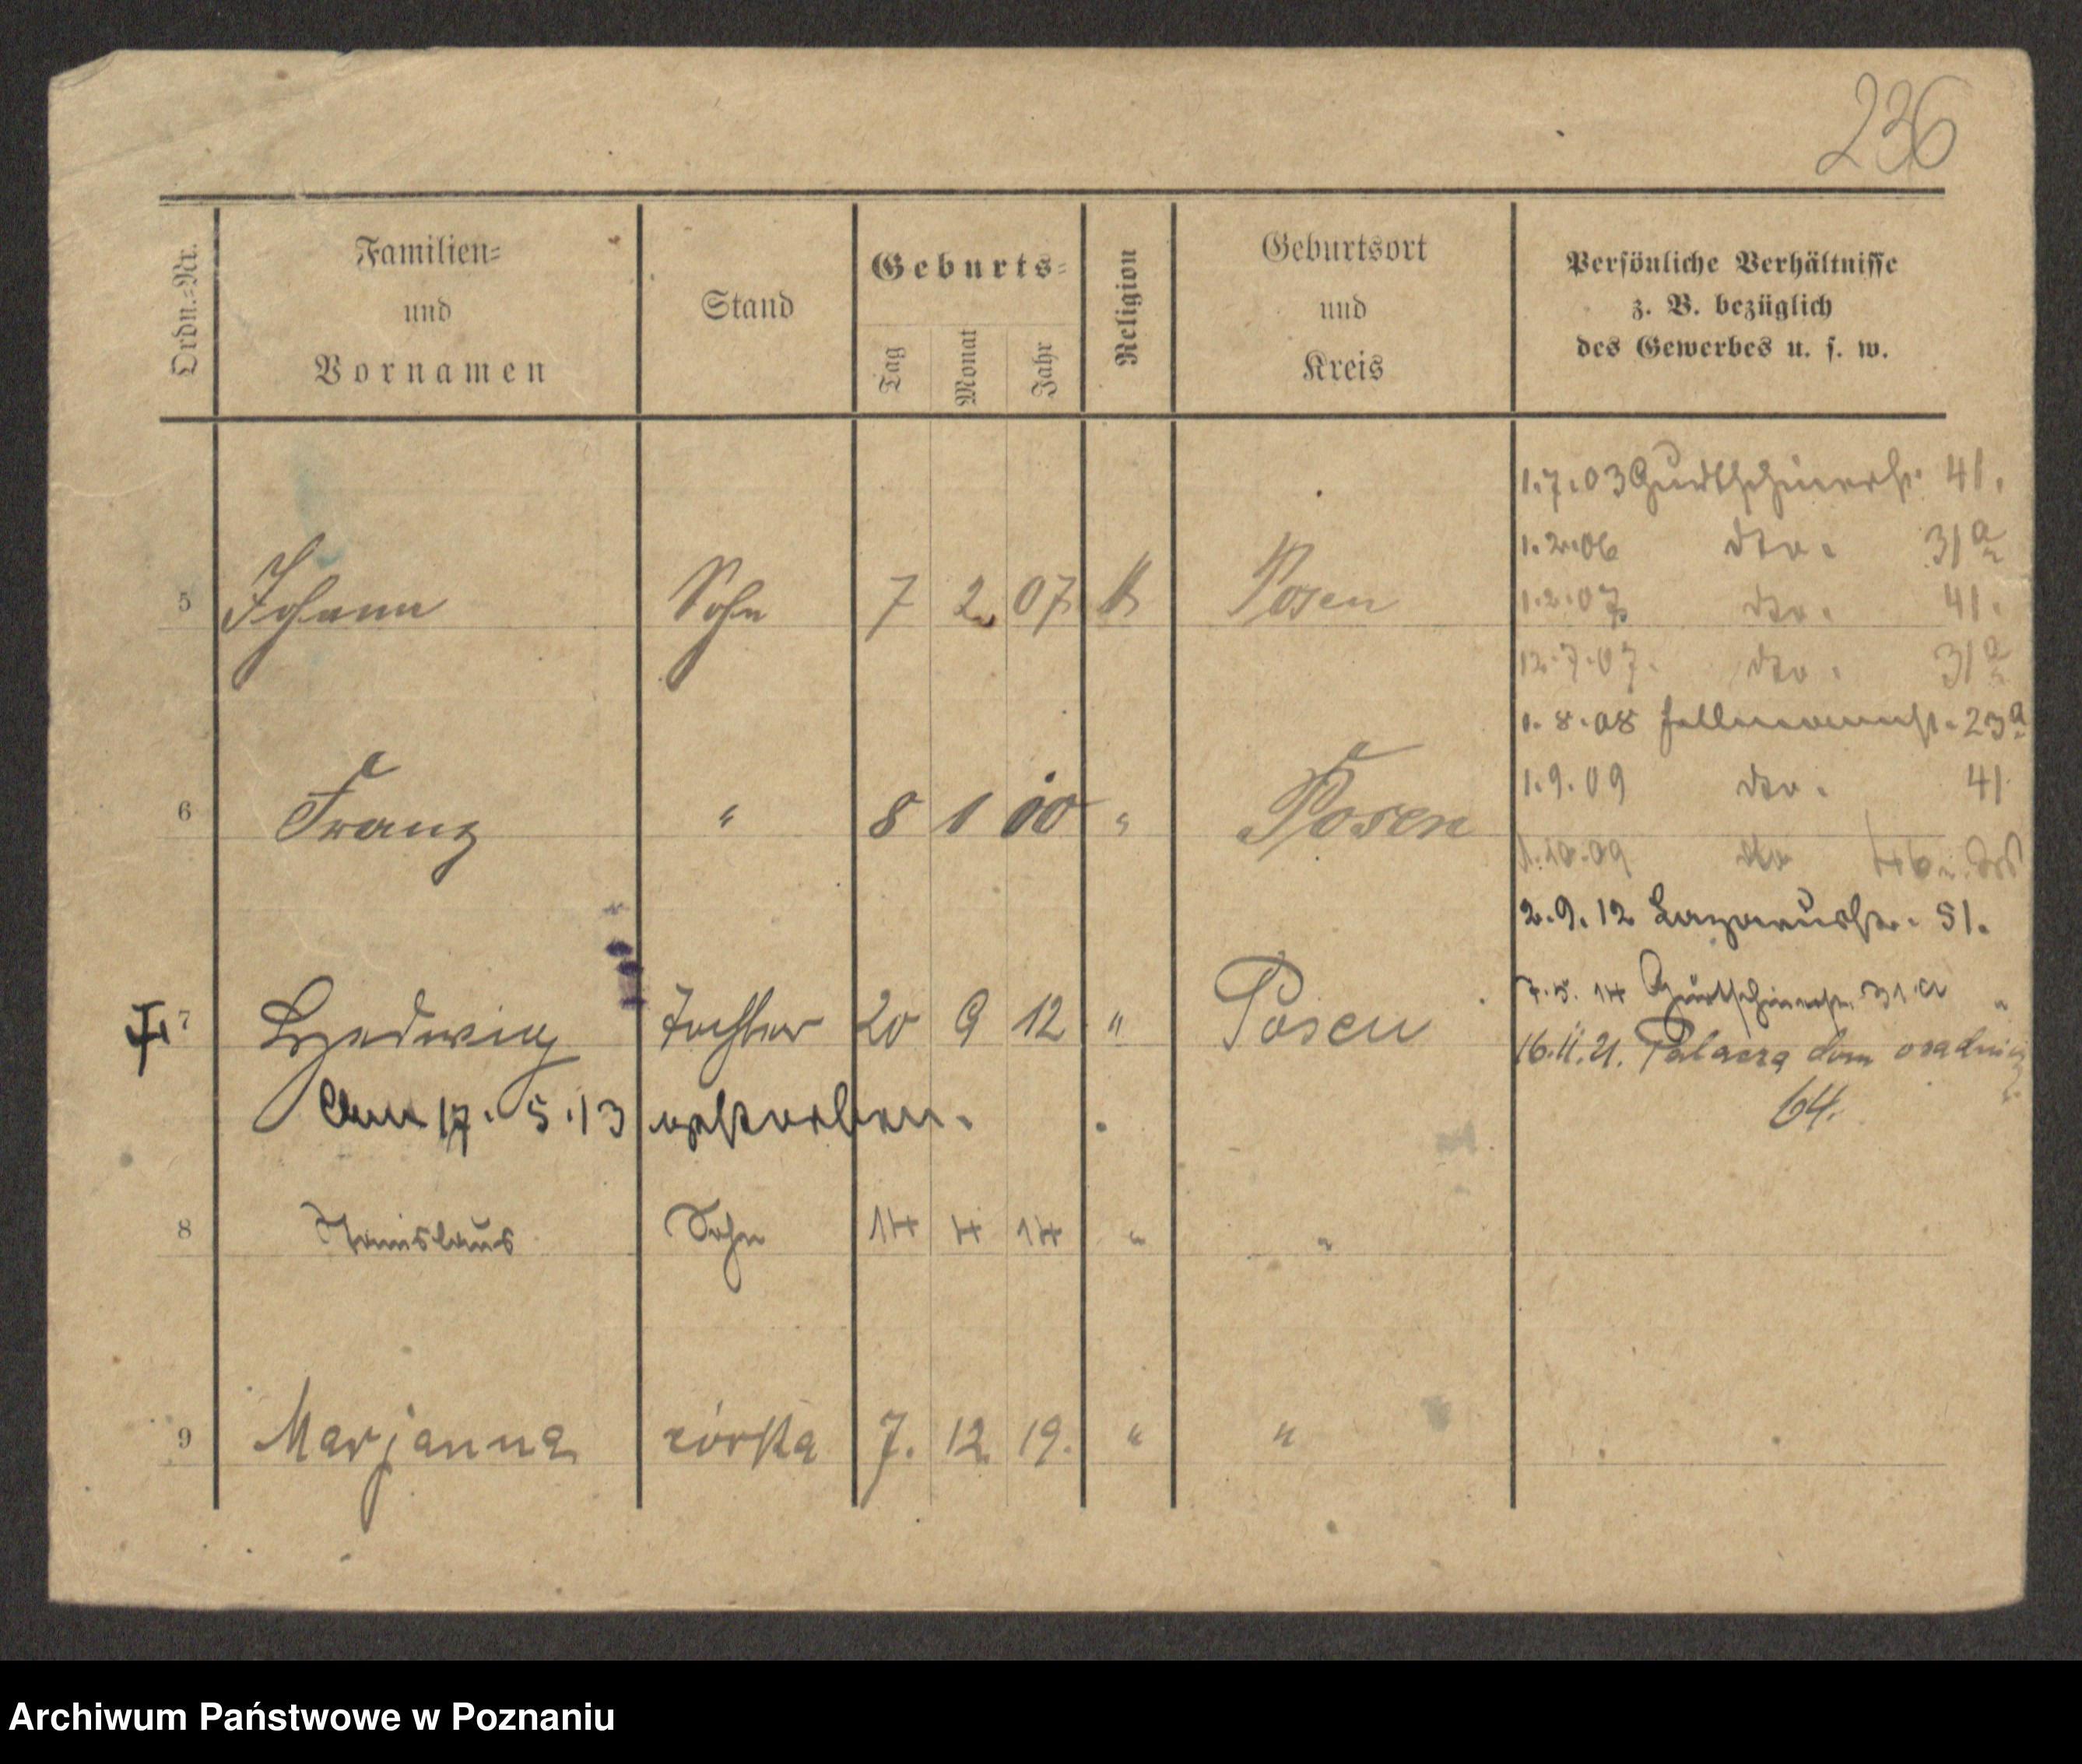 236
Ordn.-Nr.
Familien-
und
Vornamen
Stand
Geburts-
Tag
Monat
Jahr
Religion
Geburtsort
und
Kreis
Persönliche Verhältnisse
z. B. bezüglich
des Gewerbes u. s. w.
1.7.03 Gurtschinerstr. 41.
1.2.06 dto. 31a
5 Johann Sohn 7 2. 07 k Posen 1.2.07 dto. 41.
12.7.07. dto. 31a
1.8.08 Fellmannstr. 23a
1.9.09 dto. 41
6 Franz " 8 1 10 " Posen
1.10.09 dto
2.9.12 Lazarusstr. 51.
7.5.14 Gurtschinerstr. 31a
7 Hedwig Tochter 20 9 12 " Posen
16.11.21. Palacza dom
64.
Am 17.5.13 verstorben.
8 Stanislaus Sohn 14 4 14 " "
9 Marjanna córka 7. 12. 19. " "
Archiwum Państwowe w Poznaniu